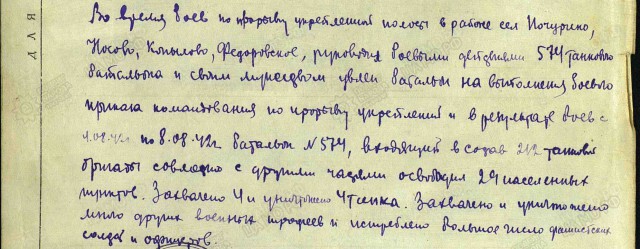 ДЛЯ
Во время боев по прорыву укрепленной полосы в районе сел Погурино,
Носово, Копылово, Федоровское, руководил боевыми действиями 574 танкового
батальона и своим мужеством увлек батальон на выполнения боевого
приказа командования по прорыву укрепления и в результате боев с
4.08.42г по 8.08.42г. батальон N 574, входящий в состав 212 танковой
бригады совместно с другими частями освободил 29 населенных
пунктов. Захвачено 4 и уничтожено 4 танка. Захвачено и уничтожено
много других военных трофеев и истреблено большое число фашистских
солдат и офицеров.